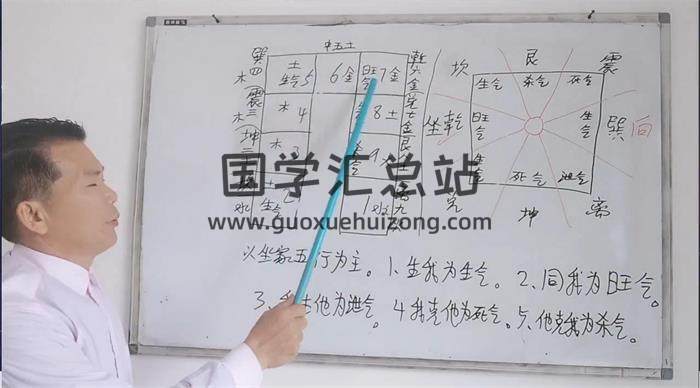 中五土
巽四木
土 生气5
6金
旺气7金
乾六金
震三木
木4
8土
兑七金
坤二
木3
艮
坎 艮 震
生气 杀气 死气
坐乾
旺气
生气
巽向
死气 泄气
兑 坤 离
国学汇总站
www.guoxuehuizong.com
以坐家五行为主。1、生我为生气。2、同我为旺气。
3、我生他为泄气。4我克他为死气。5、他克我为杀气。